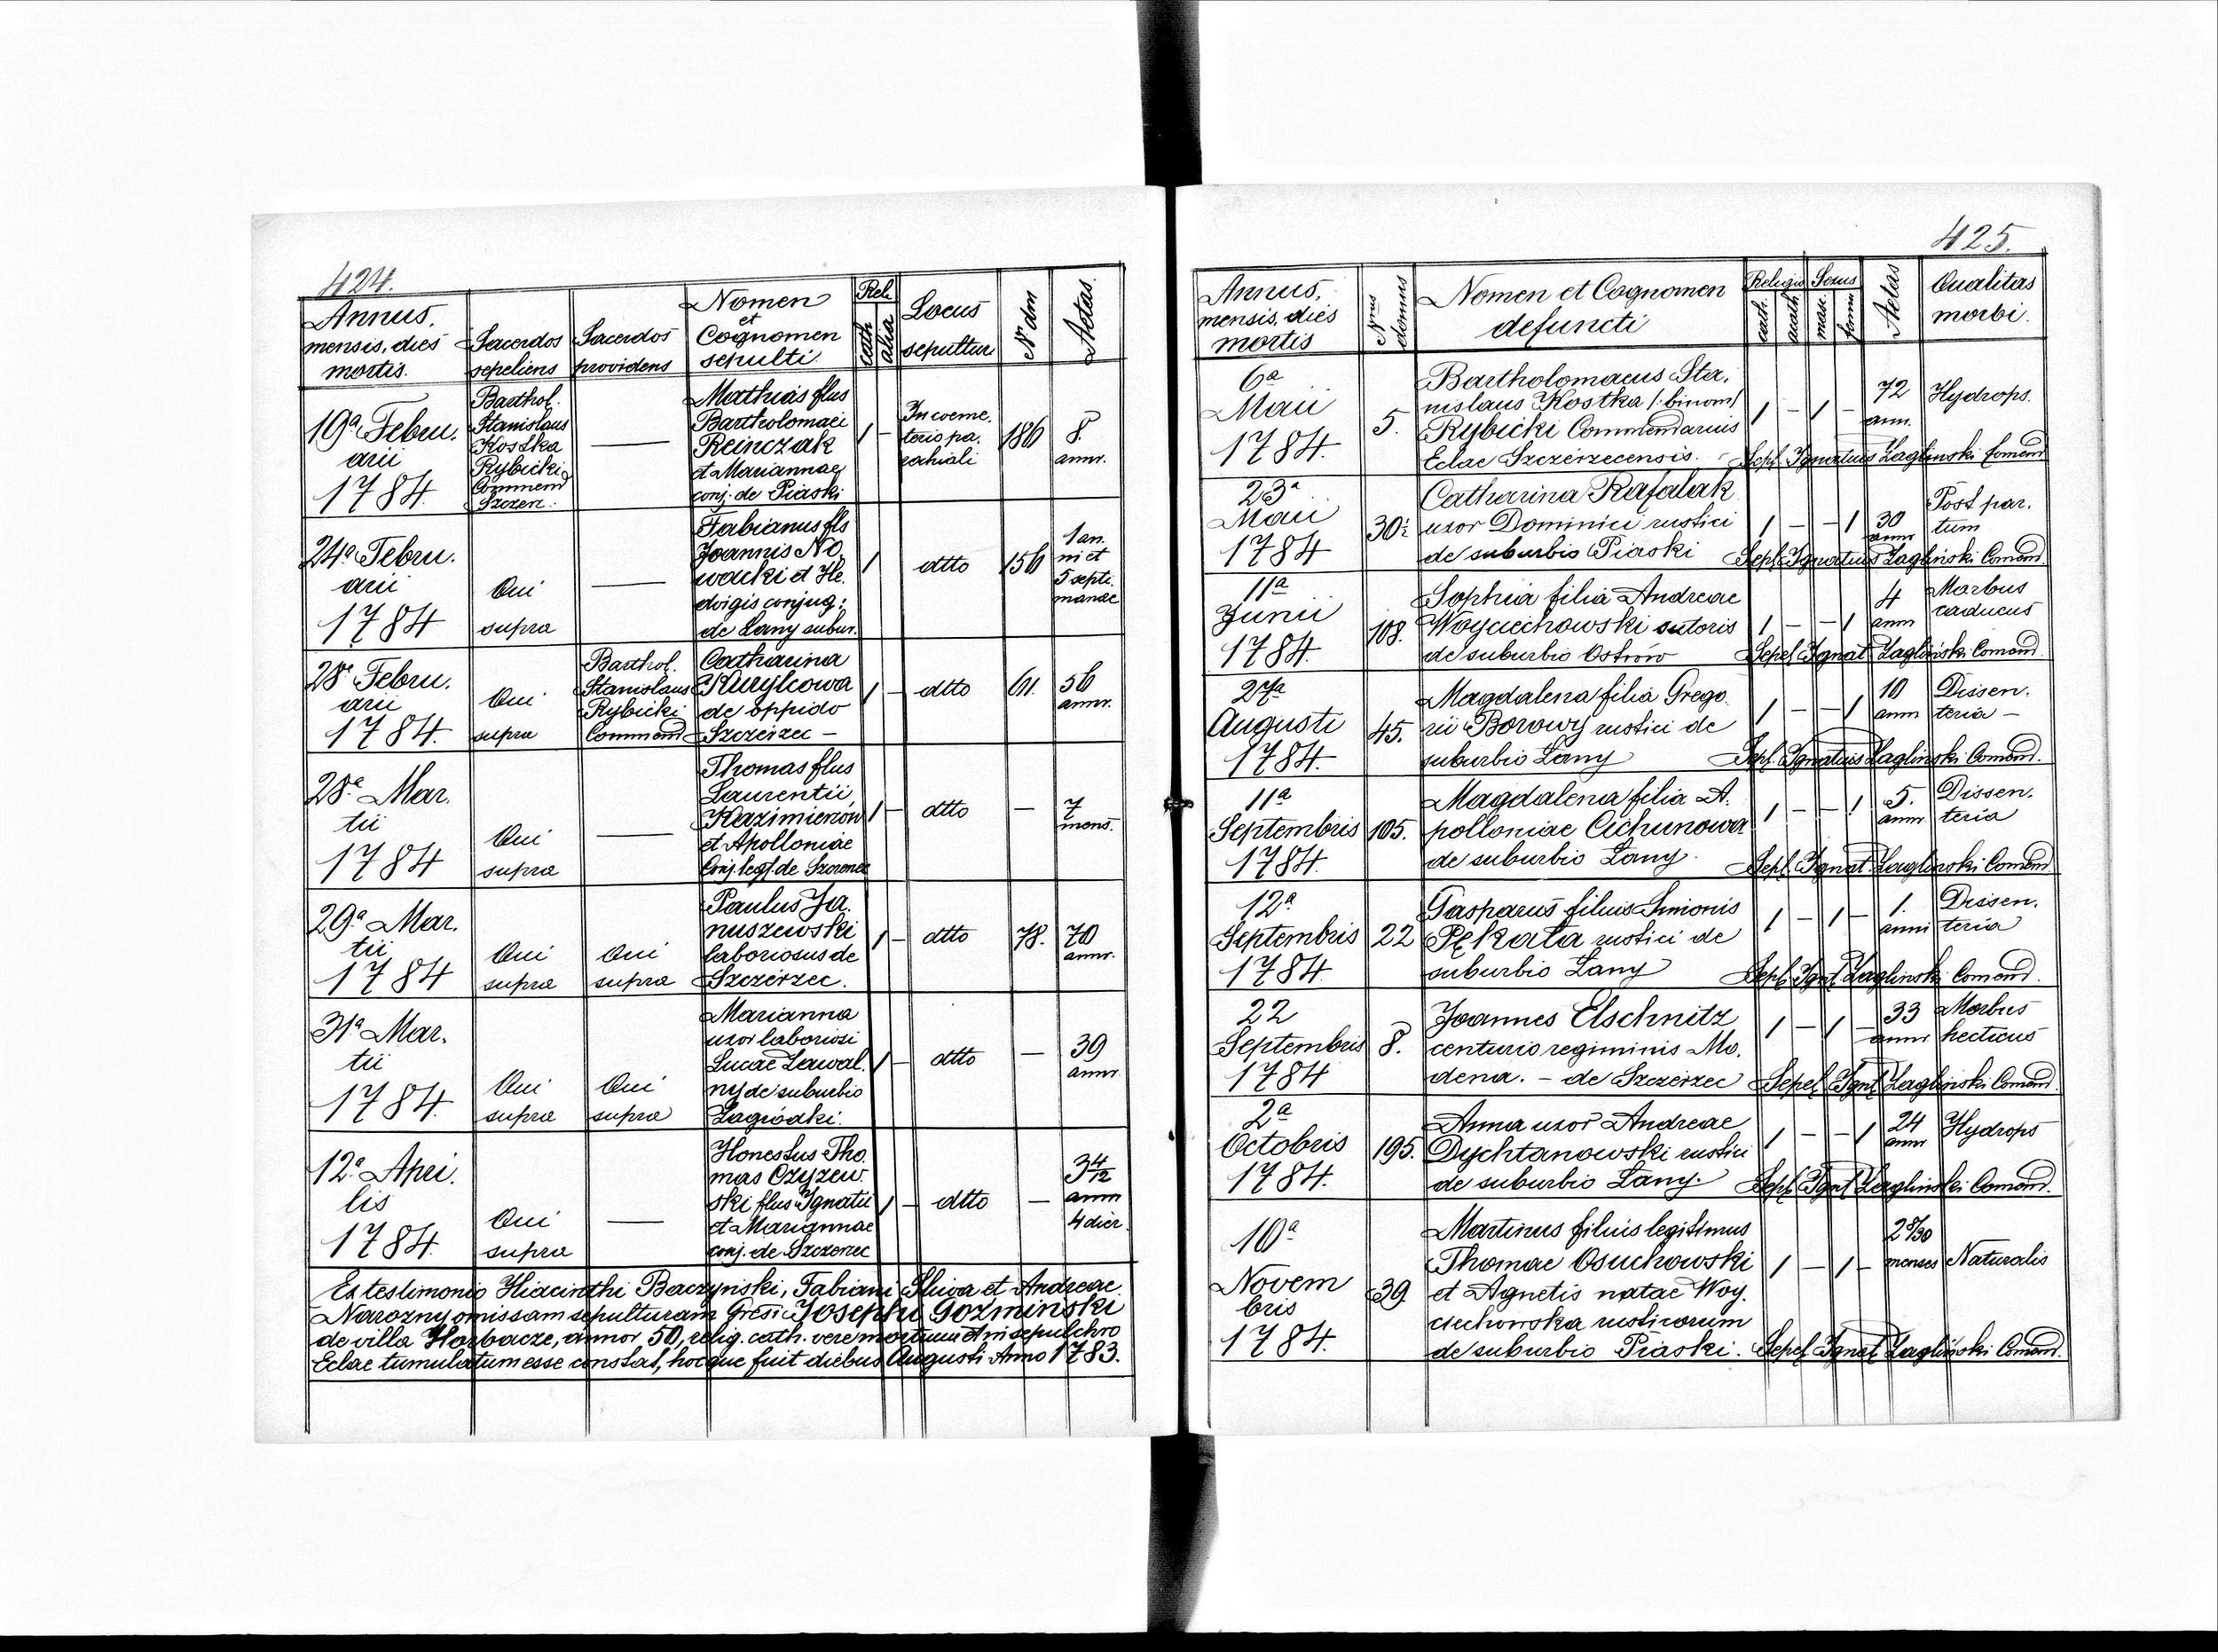 424.
Annus, mensis, dies mortis.
Sacerdos sepeliens
Sacerdos providens
Nomen et Cognomen sepulti
Rel. cath alia
Locus sepultur
Nr dm
Aetas.
19a Febru.
arii
1784.
Barthol.
Stanislaus
Kostka
Rybicki
Commend
Szczer.
—
Mathias flus
Bartholomaei
Reinczak
et Mariannae
conj. de Piaski
1 -
In coeme.
terio pa.
rochiali
186
8.
annr.
24a Febru.
arii
1784
Qui
supra
—
Fabianus fls
Joannis No.
wacki et He.
dvigis conjug:
de Lany subur.
1
dtto
156
1 an.
ni et
5 septi.
manae
28a Febru.
arii
1784.
Qui
supra
Barthol.
Stanislaus
Rybicki
Commend
Catharina
Kurylcowa
de oppido
Szczerzec -
1 -
dtto
61.
56
annr.
28a Mar.
tii
1784
Qui
supra
—
Thomas flus
Laurentii
Kazimierów
et Apolloniae
1 -
dtto
—
7
mens.
29a Mar.
tii
1784
Qui
supra
Qui
supra
Paulus Ja.
nuszewski
laboriosus de
Szczerzec.
1 -
dtto
78.
70
annr.
31a Mar.
tii
1784.
Qui
supra
Qui
supra
Marianna
uxor laboriosi
Lucae Zawal.
ny de suburbio
Zagródki.
1 -
dtto
—
39
annr.
12a Apri.
lis
1784.
Qui
supra
—
Honestus Tho.
mas Czyzew.
ski flus Ignatii
et Mariannae
conj. de Szczerzec
1 -
dtto
—
3 4/12
annr
4 dier.
Ex testimonio Hiacinthi Baczynski, Fabiani Sliwa et Andreae
Narozny omissam sepulturam Josephi Gozminski
de villa Horbacze, annor 50, relig. cath. vere mortuum et in sepulchro
Eclae tumulatum esse constat, hocque fuit diebus Augusti Anno 1783.
425.
Annus, mensis, dies mortis
Nrus domus
Nomen et Cognomen defuncti
Religio cath. acath.
Sexus masc. femin
Aetas
Qualitas morbi.
6a
Maii
1784.
5.
Bartholomaeus Sta.
nislaus Kostka /:binom/
Rybicki Commendarius
Eclae Szczerzecensis.
1 - 1 -
72
ann.
Hydrops.
Sepl. Ignatius Zaglinski Comend
23a
Maii
1784
30.
Catharina Rafalak
uxor Dominici rustici
de suburbio Piaski
1 - - 1
30
annr
Post par.
tum
Sepl. Ignatius Zaglinski Comend.
11a
Junii
1784.
108.
Sophia filia Andreae
Woyciechowski sutoris
de suburbio Ostrów
1 - - 1
4
ann
Morbus
caducus
Sepel Ignat. Zaglinski Comend.
27a
Augusti
1784.
45.
Magdalena filia Grego.
rii Borowy rustici de
suburbio Lany
1 - - 1
10
annr
Dissen.
teria -
Sepl. Ignatius Zaglinski Comend.
11a
Septembris
1784.
105.
Magdalena filia A.
polloniae Cichunowa
de suburbio Lany.
1 - - 1
5.
annr
Dissen.
teria
Sepl. Ignat. Zaglinski Comend
12a
Septembris
1784.
22
Gasparus filius Simionis
Pękała rustici de
suburbio Lany
1 - 1 -
1.
anni
Dissen.
teria
Sepl. Ignt Zaglinski Comend.
22
Septembris
1784
8.
Joannes Elschnitz
centurio regiminis Mo.
dena. - de Szczerzec
1 - 1 -
33
annr
Morbus
hecticus
Sepel Ignt Zaglinski Comend.
2a
Octobris
1784.
195.
Anna uxor Andreae
Dychtanowski rustici
de suburbio Lany.
1 - - 1
24
annr
Hydrops
Sepl. Ignt Zaglinski Comend.
10a
Novem
bris
1784.
39
Martinus filius legitimus
Thomae Osuchowski
et Agnetis natae Woy.
ciechowska rusticorum
de suburbio Piaski.
1 - 1 -
2 8/30
menses
Naturalis
Sepel Ignat Zaglinski Comend.